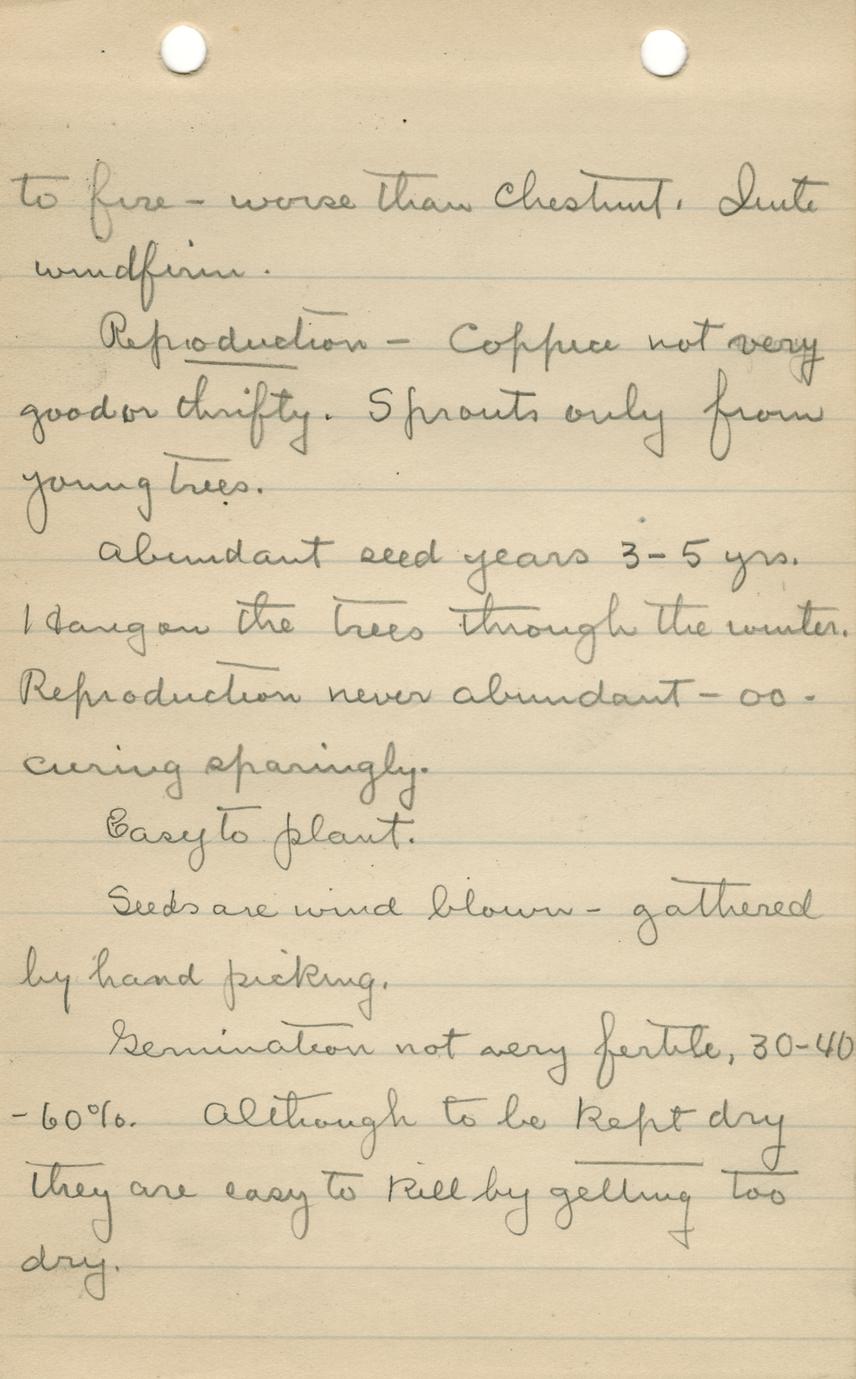 to fire - worse than Chestnut. Quite
windfirm.
Reproduction - Coppice not very
good or thrifty. Sprouts only from
young trees.
Abundant seed years 3-5 yrs.
Hang on the trees through the winter.
Reproduction never abundant - oc-
curing sparingly.
Easy to plant.
Seeds are wind blown - gathered
by hand picking.
Germination not very fertile, 30-40
-60%. Although to be kept dry
they are easy to kill by getting too
dry.